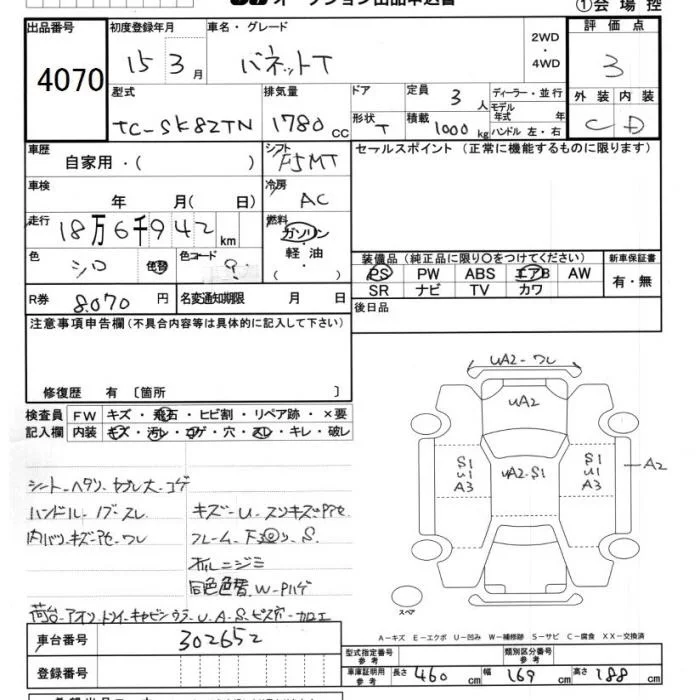 オークション出品申込書
①会場控
出品番号
4070
初度登録年月
15 3月
車名・グレード
バネットT
2WD・4WD
評価点
3
型式
TC-SK82TN
排気量
1780cc
ドア
定員 3人
ディーラー・並行
モデル年式 年
形状 T
積載 1000kg
ハンドル 左・右
外装 内装
C D
車歴
自家用・( )
シフト
F5MT
セールスポイント (正常に機能するものに限ります)
車検
年 月( 日)
冷房
AC
走行
18万6千942km
燃料
ガソリン・軽油・( )
色
シロ
色替
色コード
?
装備品(純正品に限り○をつけてください)
新車保証書
PS PW ABS エアB AW
有・無
SR ナビ TV カワ
R券
8,070円
名変通知期限 月 日
後日品
注意事項申告欄(不具合内容等は具体的に記入して下さい)
修復歴 有 〔箇所 〕
検査員記入欄
FW キズ・飛石・ヒビ割・リペア跡・×要
内装 キズ・汚レ・コゲ・穴・スレ・キレ・破レ
シート-ヘタリ-ヤブレ大-コゲ
ハンドル-ノブ-スレ
内バリ-キズ-アセ-ワレ
キズ-U-スリキズ
フレーム-下
S
オルーンジミ
同色色替 W-Pハゲ
荷台-アオリ
U.A.S
UA2-ワレ
UA2
S1
U1
A3
UA2-S1
S1
U1
A3
A2
スペア
A-キズ E-エクボ U-凹み W-補修跡 S-サビ C-腐食 XX-交換済
車台番号
302652
登録番号
型式指定番号 参考
類別区分番号 参考
車庫証明用 参考 長さ 460cm 幅 169cm 高さ 188cm